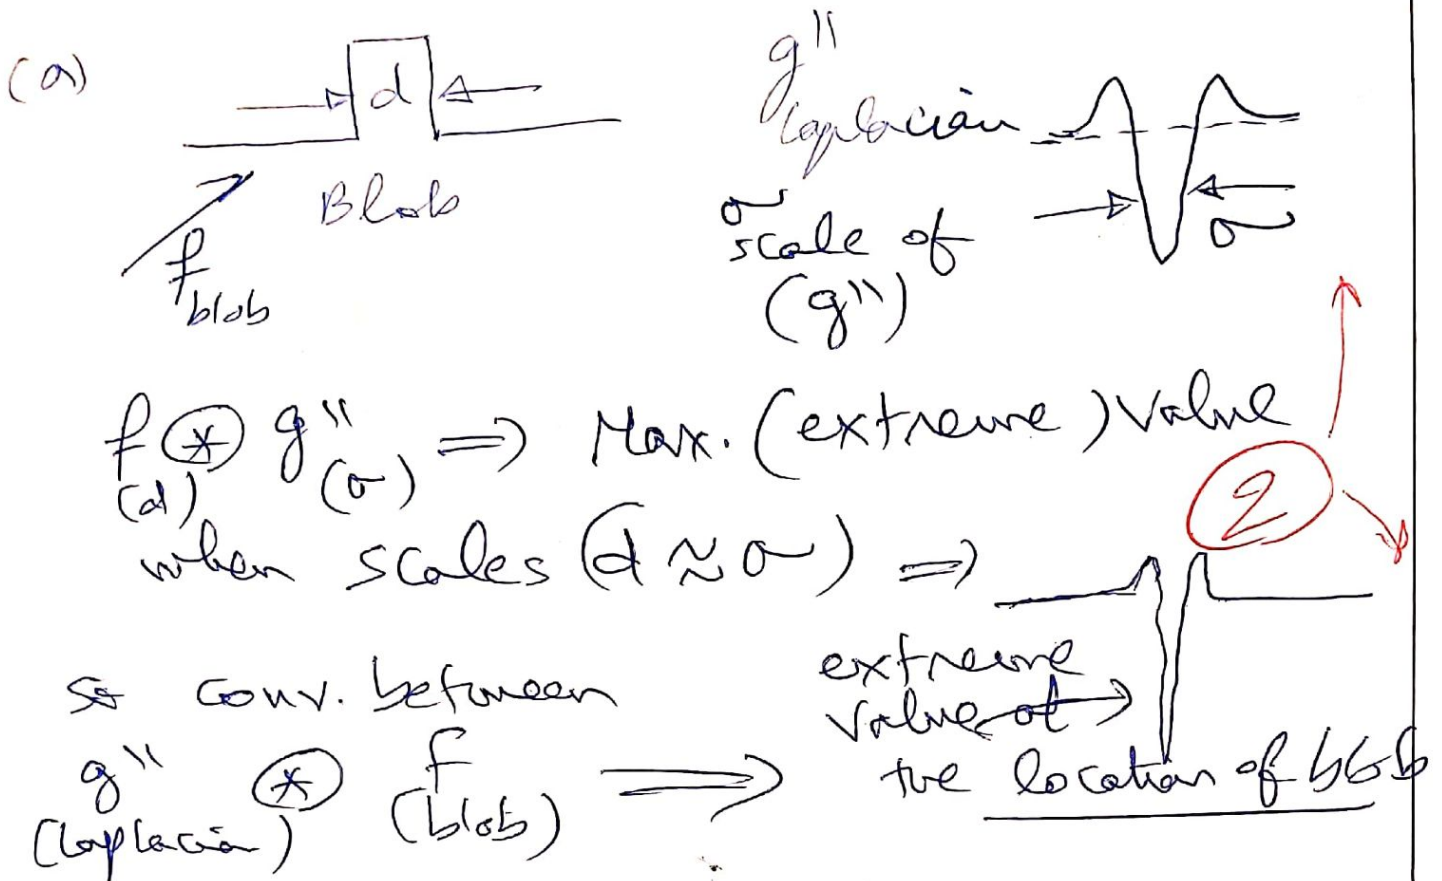 (a)
d
Blob
f
blob
g''
Laplacian
σ
scale of
(g'')
σ
f ⊛ g'' ⇒ Max. (extreme) Value
(d) (σ)
2
when scales (d ≈ σ) ⇒
so conv. between
g'' ⊛ f ⟹
(Laplacian) (blob)
extreme
value at
the location of blob